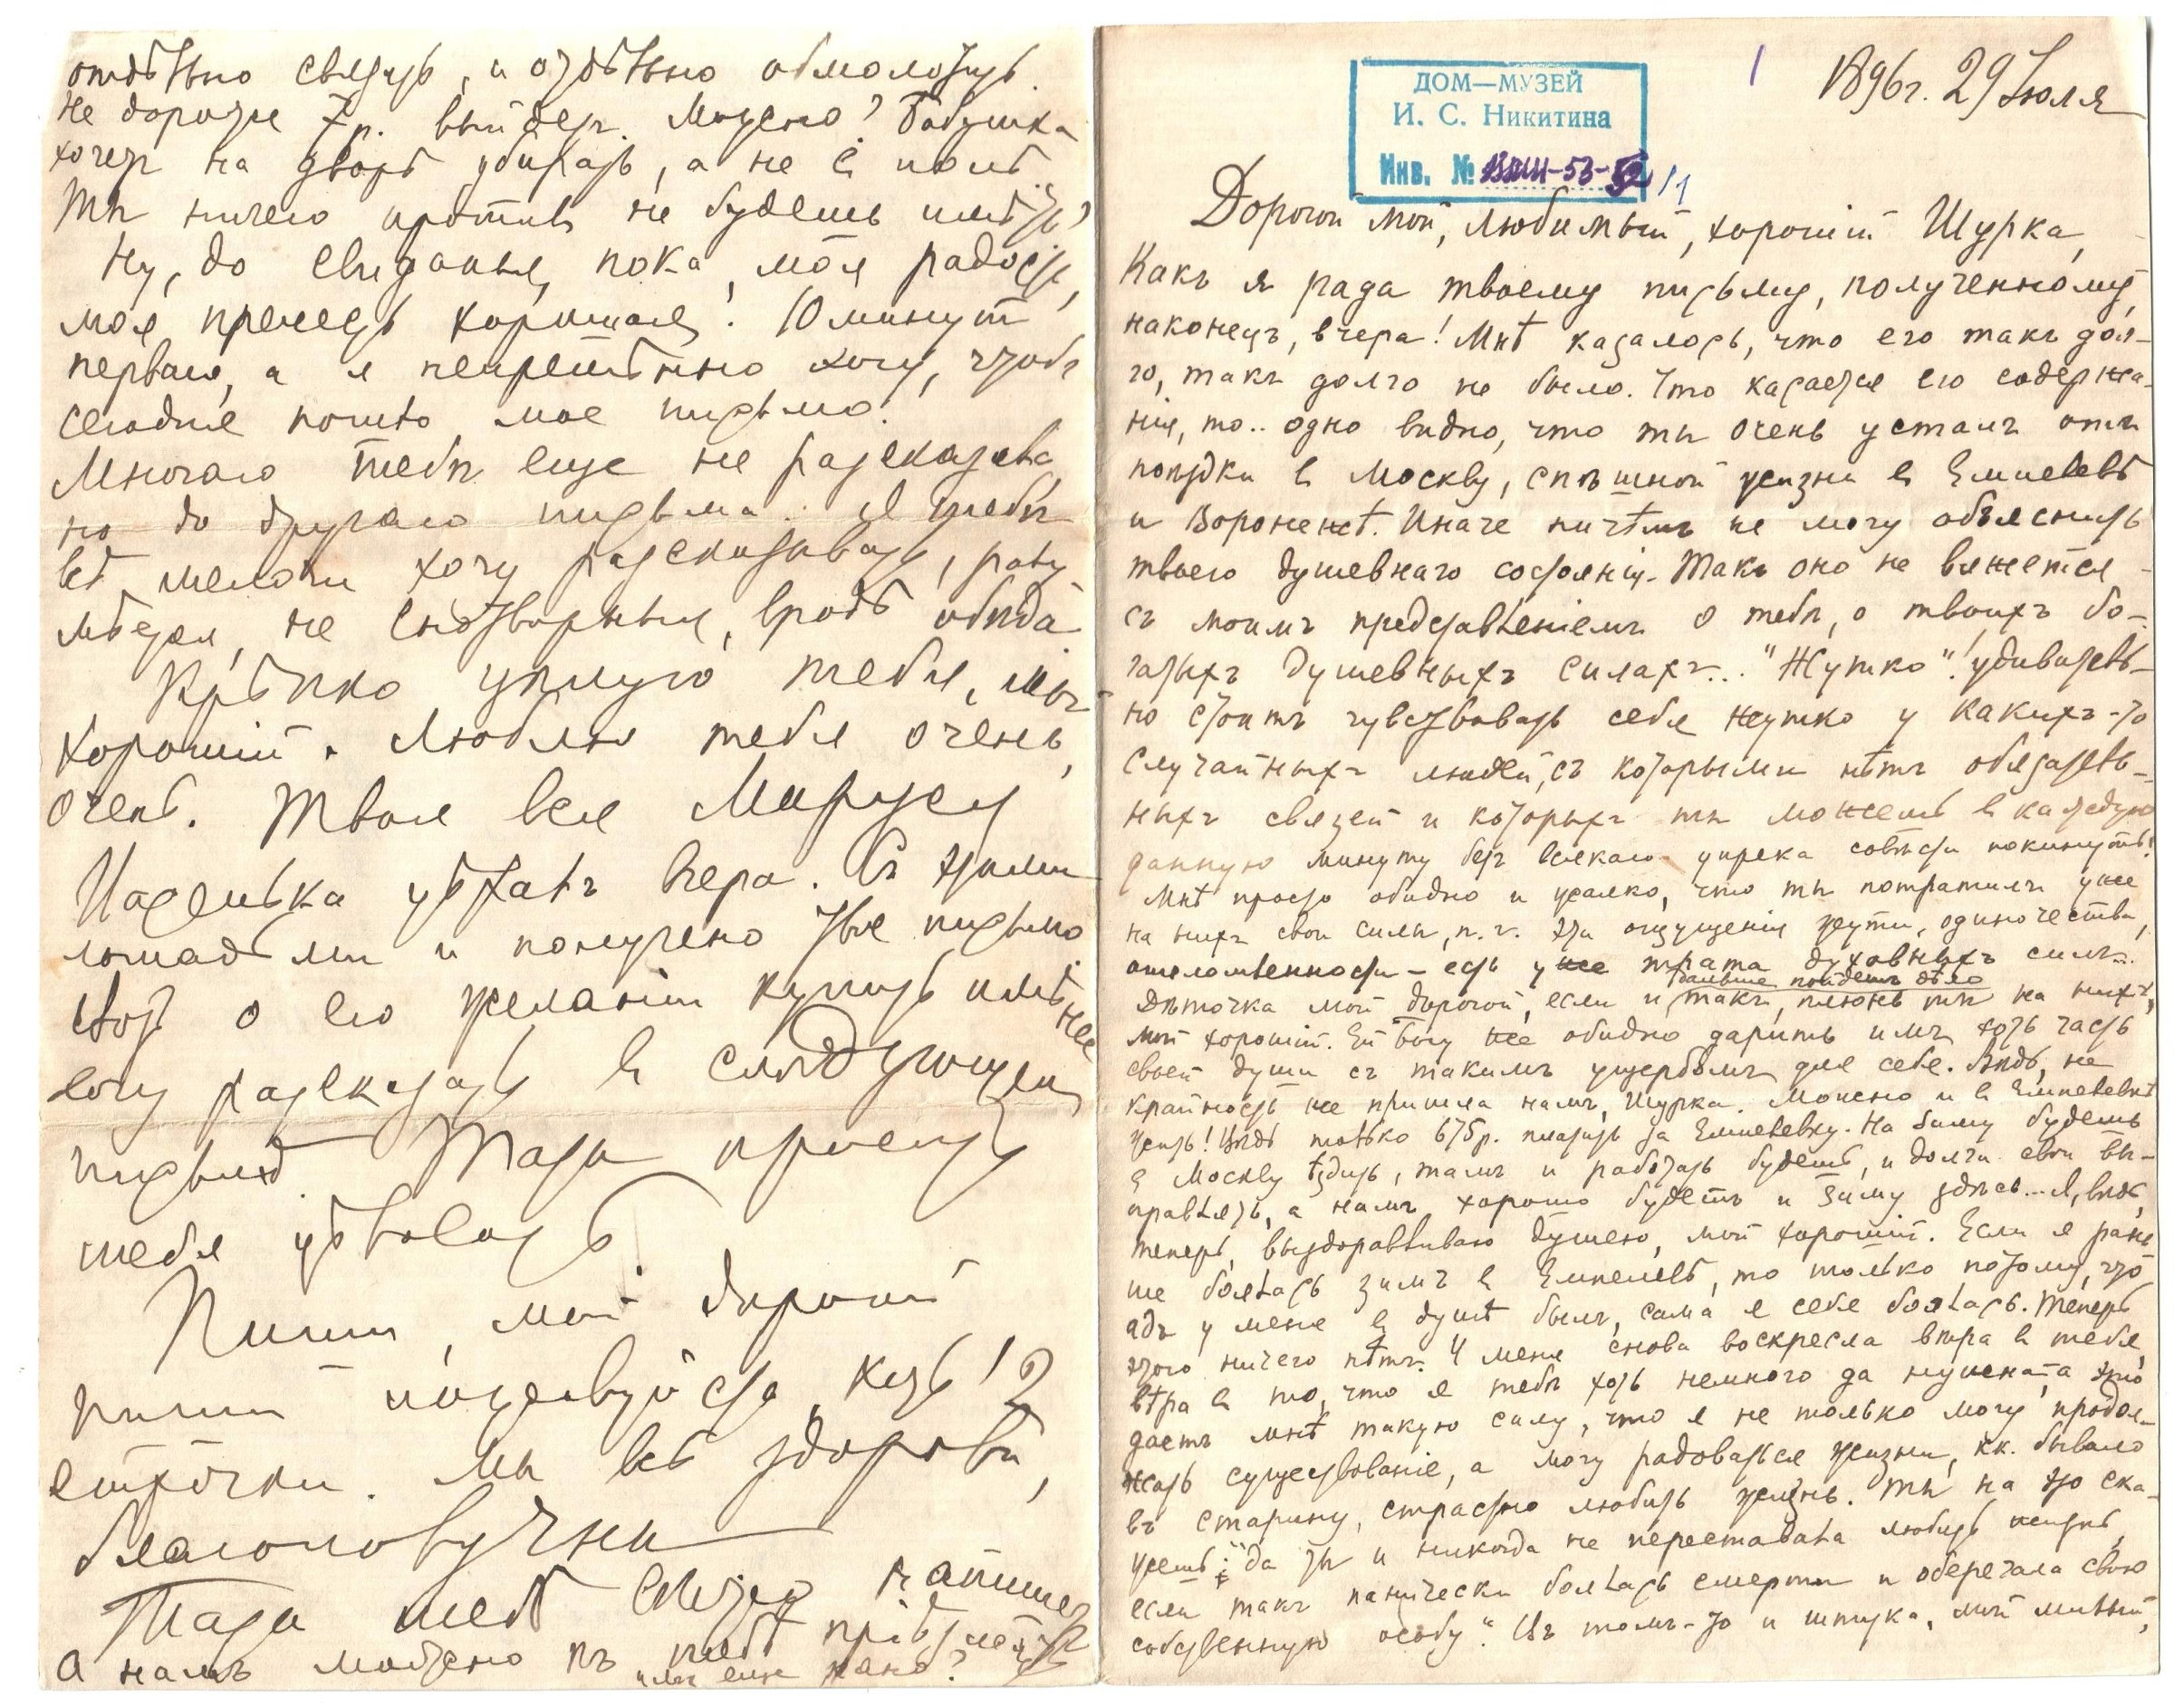 отдѣльно связать, и отдѣльно обмолотить.
Не дороже 7 р. выйдет. Можно? Бабушка
хочет на дворѣ убирать, а не в полѣ.
Ты ничего против не будешь имѣть?
Ну, до свиданья, пока, моя радость,
моя прелесть хорошая! 10 минут
перваго, а я непремѣнно хочу, чтобы
сегодня пошло мое письмо.
Многаго тебѣ еще не разсказала,
но до другаго письма. Я тебѣ
всѣ мелочи хочу разсказывать,
не снотворныя, вродѣ обѣда
Крѣпко цѣлую тебя, мой
хорошій. Люблю тебя очень,
очень. Твоя вся Маруся
уѣхалъ вчера. Съ этими
лошадьми и получено твое письмо
Вот о его желаніи купить имѣніе
хочу разсказать в слѣдующем
письмѣ. Тата просит
тебя цѣловать.
Пиши, мой дорогой
пиши пожалуйста, хоть 2
строчки. Мы всѣ здоровы,
благополучны
Тата тебѣ скоро напишет
а намъ можно къ тебѣ пріѣхать
или еще рано?
1
1896 г. 29 Іюля
ДОМ—МУЗЕЙ
И. С. Никитина
Инв. №
Дорогой мой, любимый, хорошій Шурка,
Какъ я рада твоему письму, полученному,
наконецъ, вчера! Мнѣ казалось, что его такъ дол-
го, такъ долго не было. Что касается его содержа-
нія, то.. одно видно, что ты очень усталъ отъ
поѣздки в Москву, спѣшной жизни в Емпелевѣ
и Воронежѣ. Иначе ничѣмъ не могу объяснить
твоего душевнаго состоянія. Такъ оно не вяжется
съ моимъ представленіемъ о тебѣ, о твоихъ бо-
гатыхъ душевныхъ силахъ... "Жутко"! удиватель-
но стоитъ чувствовать себя жутко у какихъ-то
случайныхъ людей, съ которыми нѣтъ обязатель-
ныхъ связей и которыхъ ты можешь в каждую
данную минуту безъ всякаго упрека совѣсти покинуть!
Мнѣ просто обидно и жалко, что ты потратилъ уже
на нихъ свои силы, п. ч. эти ощущенія жути, одиночества,
ошеломленности – есть уже трата духовныхъ силъ...
дальше пойдетъ дѣло
Дѣточка мой дорогой, если и такъ, плюнь ты на нихъ,
мой хорошій. Ей Богу же обидно дарить имъ хоть часть
своей души съ такимъ ущербомъ для себя. Вѣдь, не
крайность же пришла намъ, Шурка. Можно и в Емпелевкѣ
жить! Вѣдь только 675 р. платить за Емпелевку. На зиму будешь
в Москву ѣздить, тамъ и работать будешь, и долги свои вы-
правлять, а намъ хорошо будетъ и зиму здѣсь... Я, вѣдь,
теперь, выздоравливаю душею, мой хорошій. Если я рань
ше боялась зимъ в Емпелевѣ, то только потому, что
адъ у меня в душѣ былъ, сама я себя боялась. Теперь
этого ничего нѣтъ. У меня снова воскресла вѣра в тебя,
вѣра в то, что я тебѣ хоть немного да нужна, а это
даетъ мнѣ такую силу, что я не только могу продол-
жать существованіе, а могу радоваться жизни, кк. бывало
въ старину, страстно любить жизнь. Ты на это ска-
жешь: "да ты и никогда не переставала любить жизнь,
если такъ панически боялась смерти и оберегала свою
собственную особу". Въ томъ-то и штука, мой милый,